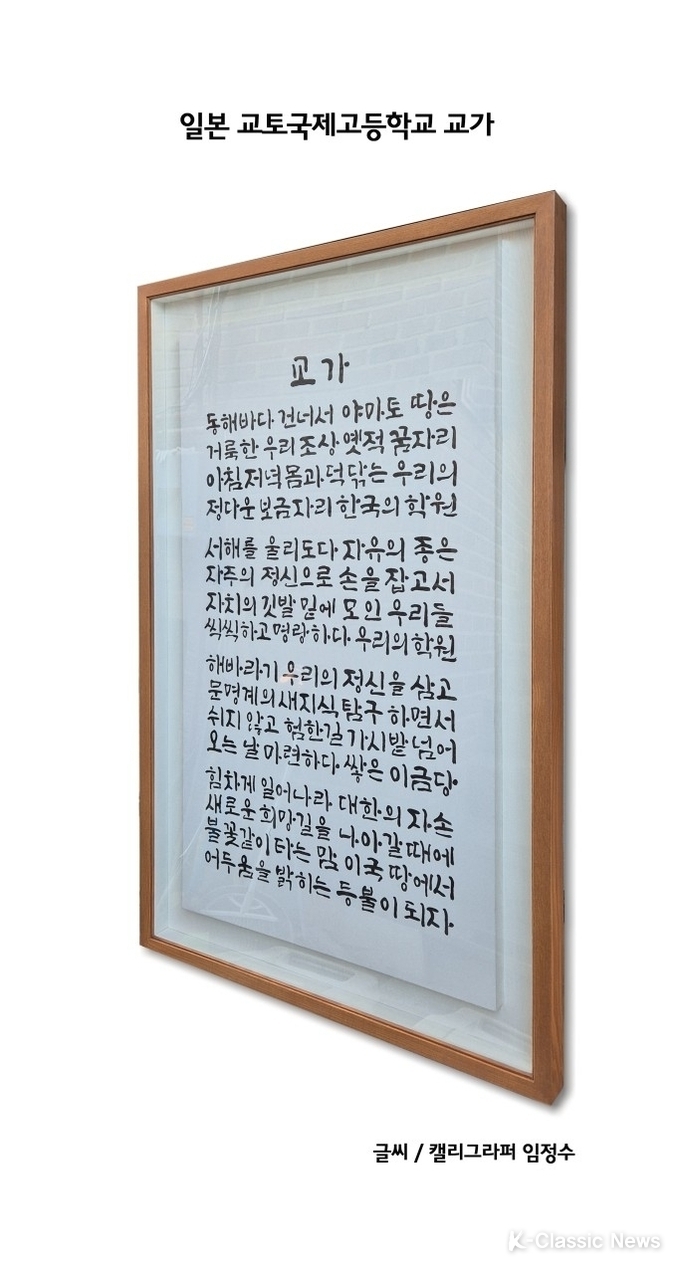 일본 교토국제고등학교 교가
교가
동해바다 건너서 야마토 땅은
거룩한 우리 조상 옛적 꿈자리
아침저녁 몸과 덕 닦는 우리의
정다운 보금자리 한국의 학원
서해를 울리도다 자유의 종은
자주의 정신으로 손을 잡고서
자치의 깃발 밑에 모인 우리들
씩씩하고 명랑하다 우리의 학원
해바라기 우리의 정신을 삼고
문명계의 새지식 탐구 하면서
쉬지 않고 험한길 가시밭 넘어
오는 날 마련하다 쌓은 이금당
힘차게 일어나라 대한의 자손
새로운 희망길을 나아갈 때에
불꽃같이 타는 맘 이국 땅에서
어두움을 밝히는 등불이 되자
글씨 / 캘리그라퍼 임정수
K-Classic News